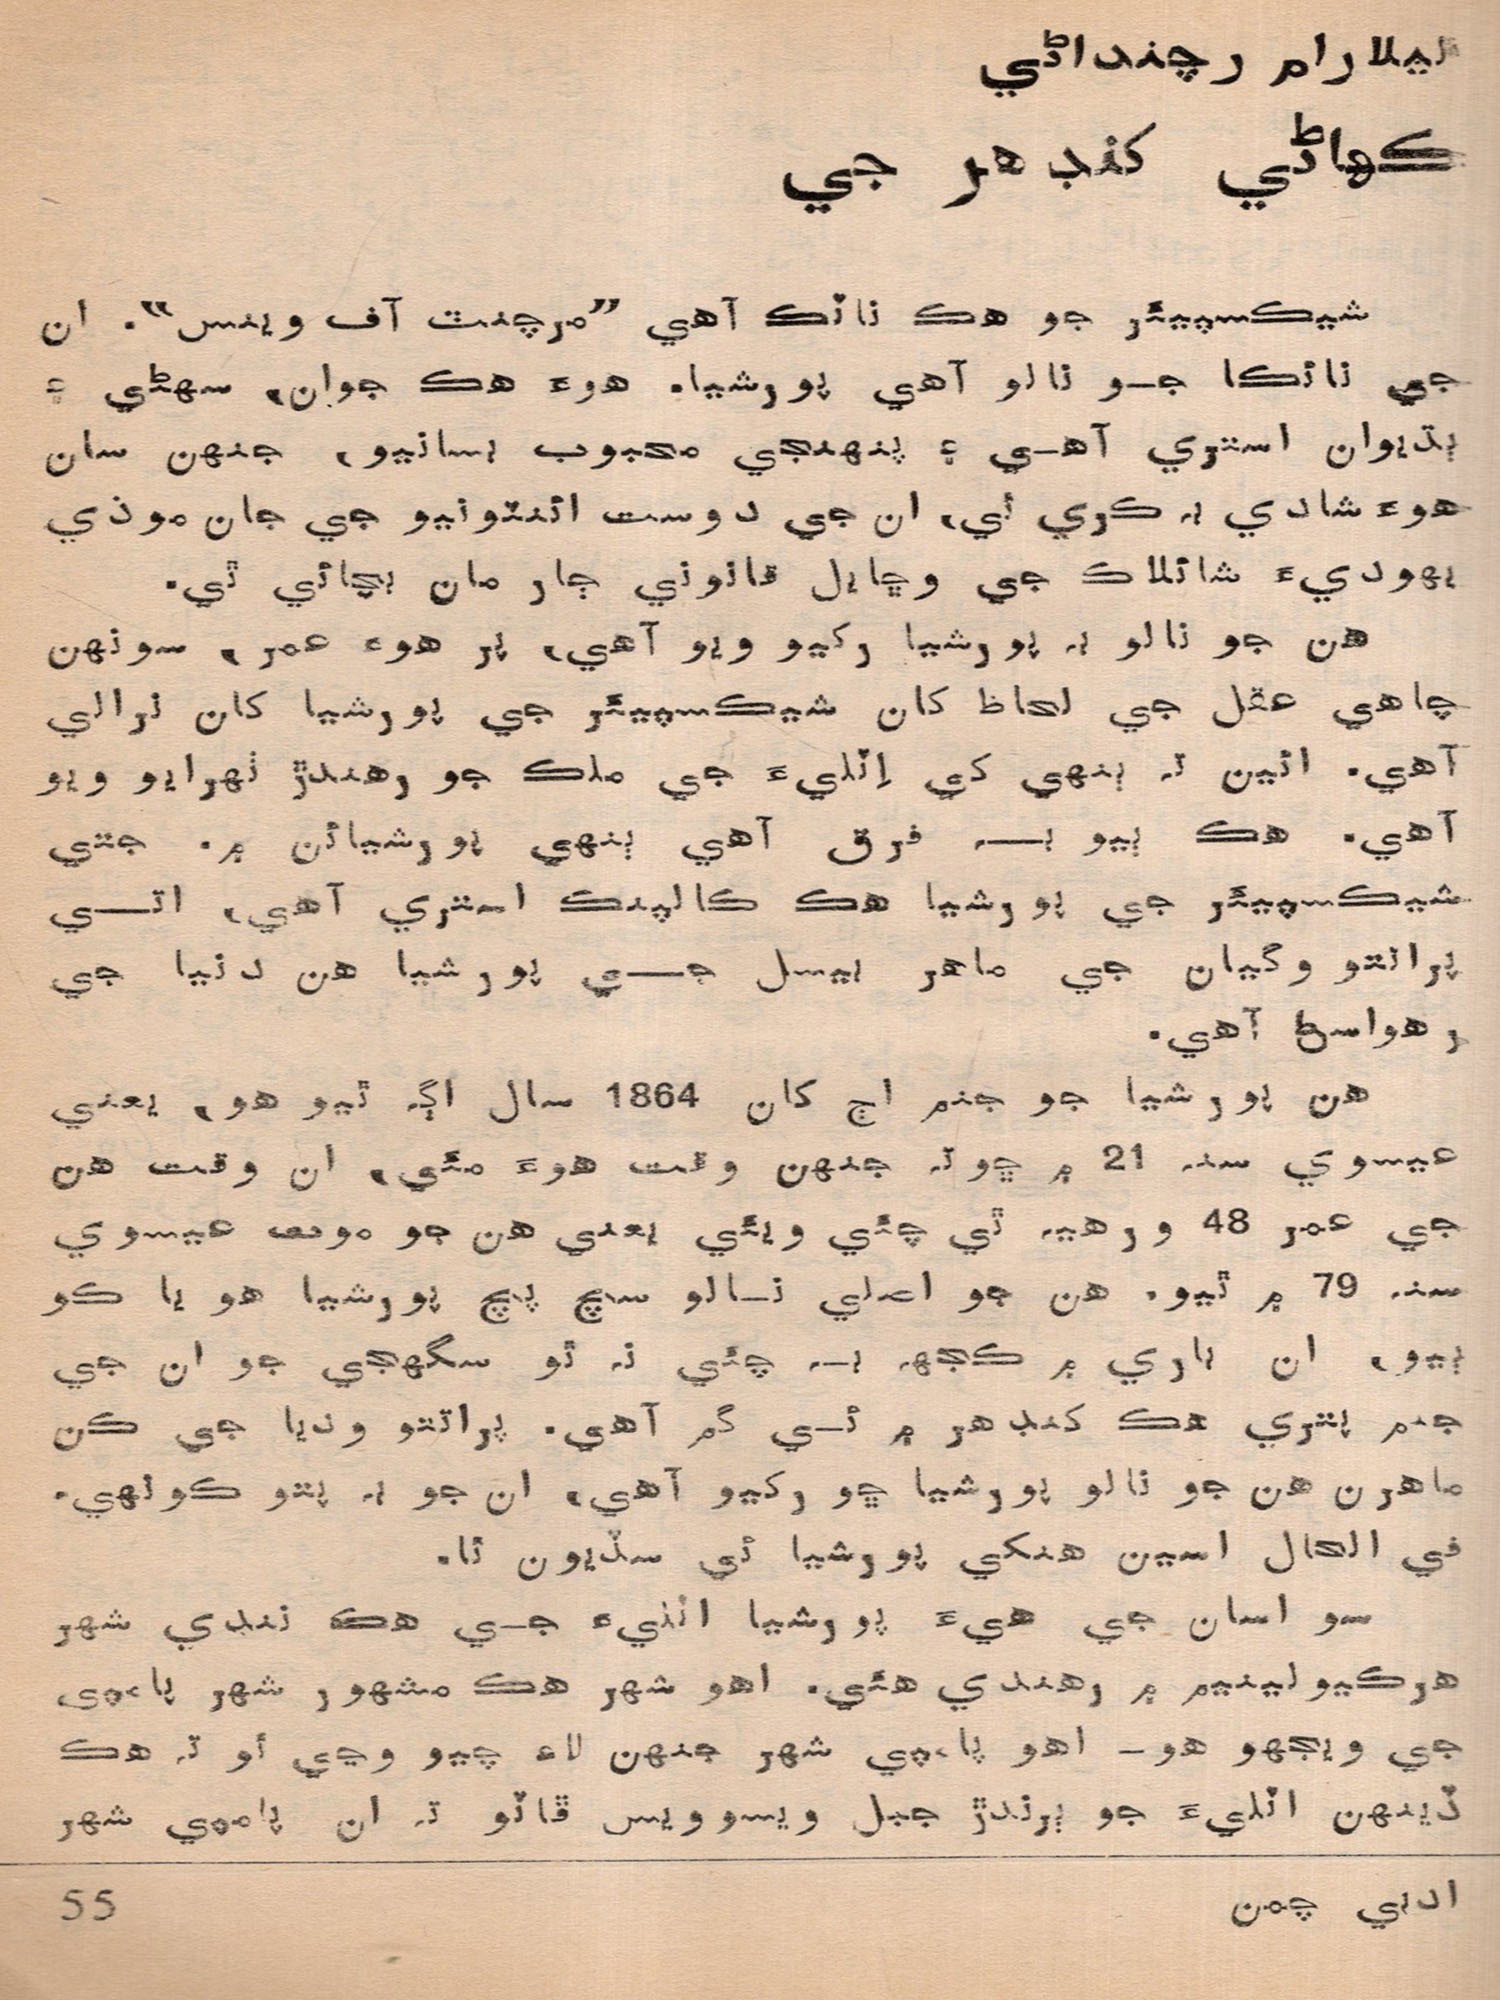 ليلارام رچنداڻي
ڪهاڻي کنڊهر جي
شيڪسپيئر جو هڪ ناٽڪ آهي ”مرچنٽ آف وينس“. ان
جي نائڪا جو نالو آهي پورشيا. هوءَ هڪ جوان، سهڻي ۽
ٻڌيوان استري آهي ۽ پنهنجي محبوب بسانيو، جنهن سان
هوءَ شادي بہ ڪري ٿي، ان جي دوست ائنٽونيو جي جان موذي
يهوديءَ شائلاڪ جي وڇايل قانوني ڄار مان بچائي ٿي.
هن جو نالو بہ پورشيا رکيو ويو آهي، پر هوءَ عمر، سونهن
چاهي عقل جي لحاظ کان شيڪسپيئر جي پورشيا کان نرالي
آهي. ائين تہ ٻنهي کي اِٽليءَ جي ملڪ جو رهندڙ ٺهرايو ويو
آهي. هڪ ٻيو بہ فرق آهي ٻنهي پورشيائن ۾. جتي
شيڪسپيئر جي پورشيا هڪ ڪالپنڪ استري آهي، اتي
پراتتو وگيان جي ماهر بيسل جي پورشيا هن دنيا جي
رهواسڻ آهي.
هن پورشيا جو جنم اڄ کان 1864 سال اڳہ ٿيو هو، يعني
عيسوي سنہ 21 ۾ ڇوتہ جنهن وقت هوءَ مئي، ان وقت هن
جي عمر 48 ورهيہ ٿي چئي ويئي يعني هن جو موت عيسوي
سنہ 79 ۾ ٿيو. هن جو اصلي نالو سچ پچ پورشيا هو يا ڪو
ٻيو، ان باري ۾ ڪجهہ بہ چئي نہ ٿو سگهجي جو ان جي
جنم پتري هڪ کنڊهر ۾ ئي گم آهي. پراتتو وديا جي ڪن
ماهرن هن جو نالو پورشيا ڇو رکيو آهي، ان جو بہ پتو ڪونهي.
في الحال اسين هنکي پورشيا ئي سڏيون ٿا.
سو اسان جي هيءَ پورشيا اٽليءَ جي هڪ ننڍي شهر
هرڪيولينيم ۾ رهندي هئي. اهو شهر هڪ مشهور شهر پامپي
جي ويجهو هو- اهو پامپي شهر جنهن لاءِ چيو وڃي ٿو تہ هڪ
ڏينهن اٽليءَ جو ٻرندڙ جبل ويسوويس ڦاٽو تہ ان پامپي شهر
ادبي چمن
55